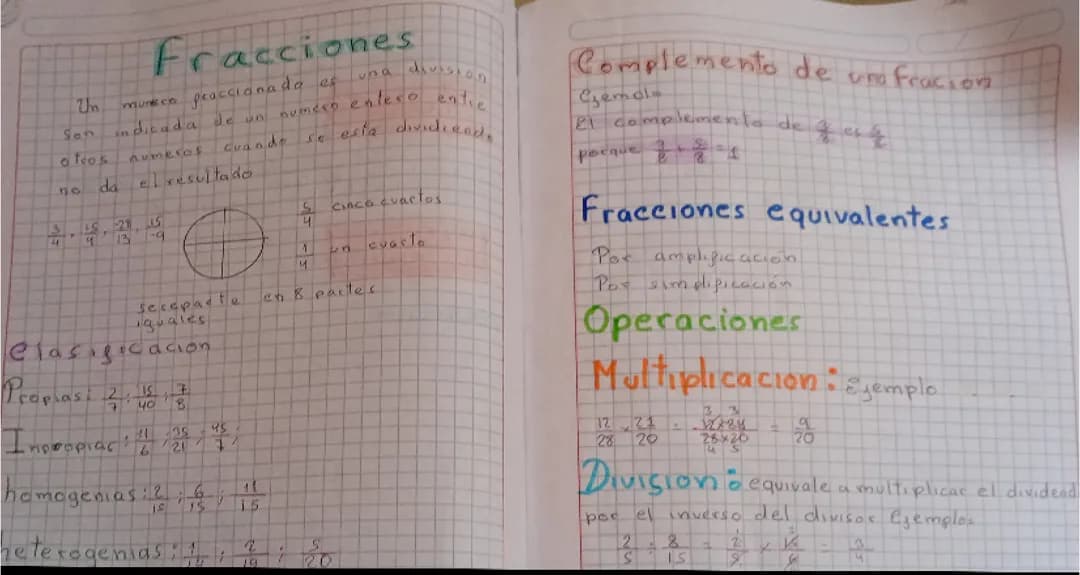 Fracciones
Un munero fraccionado es una division
son indicada de un numero entero entre
otros numeros cuando se esta dividiendo
no da el resultado
3/4, 15/4, -28/13, 15/-9
5/4 cinco cuactos
1/4 un cuacto
se reparte en 8 partes
iguales
clasificacion
Propias: 2/7; 15/40; 7/8
Inpropias: 11/6; 35/21; 45/7;
homogenias: 2/15; 6/15; 11/15
heterogenias: 1/14; 2/19; 5/20
Complemento de una fracion
Ejemplo
El complemento de es
porque = 1
Fracciones equivalentes
Por amplificación
Por simplificación
Operaciones
Multiplicacion: Ejemplo
12/28 × 21/20 = 12×21/28×20 = 9/20
3 3
4 5
Division: equivale a multiplicar el dividend
por el inverso del divisor Ejemplo:
2/5 ÷ 8/15 = = 3/4